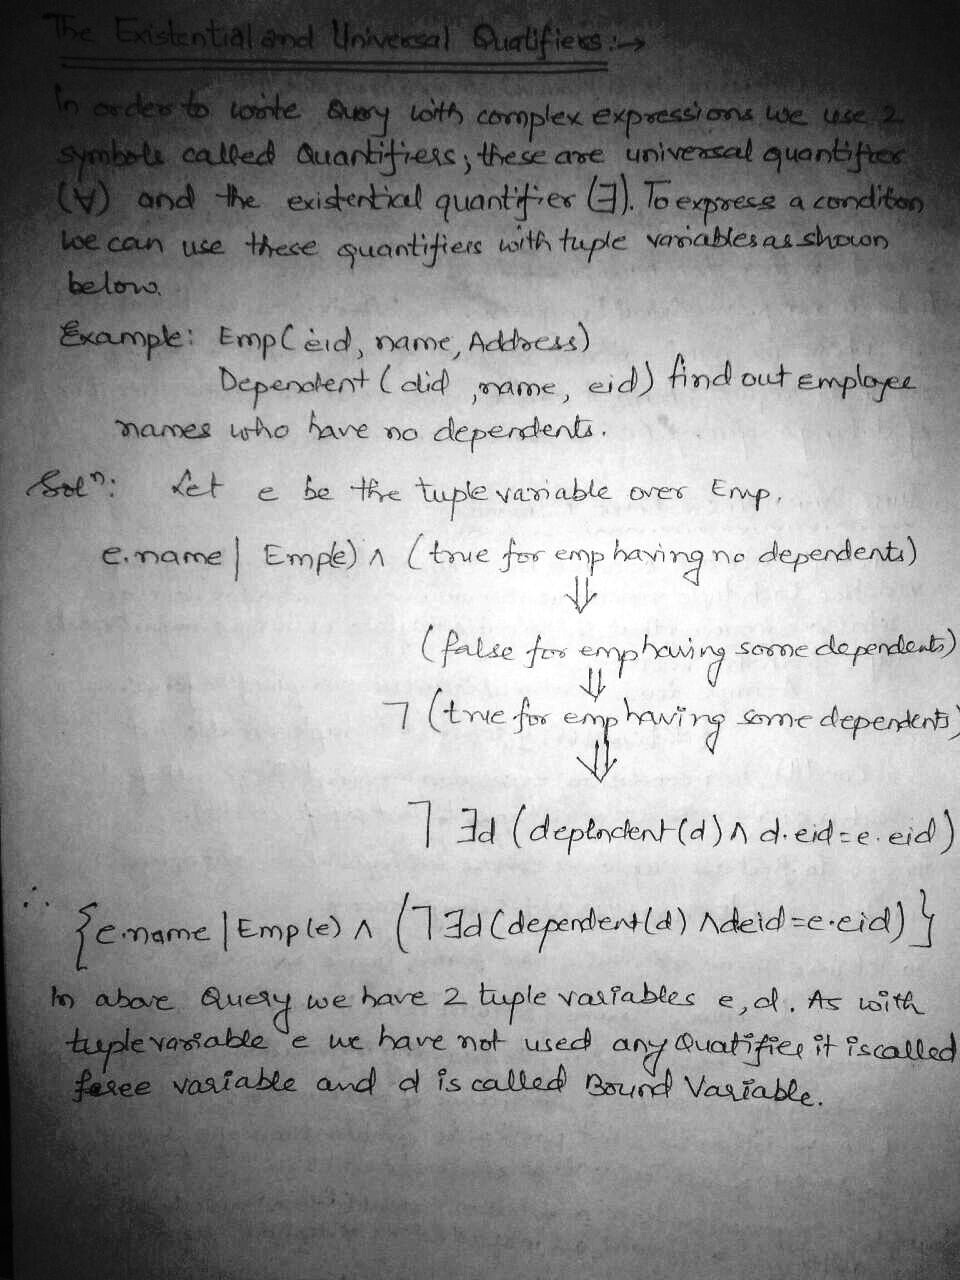 The Existential and Universal Quatifiers :→
In order to write Query with complex expressions we use 2
symbols called Quantifiers; these are universal quantifier
(∀) and the existential quantifier (∃). To express a condition
we can use these quantifiers with tuple variables as shown
below.
Example: Emp(eid, name, Address)
Dependent (did, name, eid) find out employee
names who have no dependents.
Solⁿ: Let e be the tuple variable over Emp.
e.name | Emp(e) ∧ (true for emp having no dependents)
⇓
(false for emp having some dependents)
⇓
¬ (true for emp having some dependents)
⇓
¬ ∃d (dependent(d) ∧ d.eid = e.eid)
∴ {e.name | Emp(e) ∧ (¬∃d(dependent(d) ∧ deid = e.eid)}
In above Query we have 2 tuple variables e, d. As with
tuple variable e we have not used any Quatifier it is called
feree variable and d is called Bound Variable.